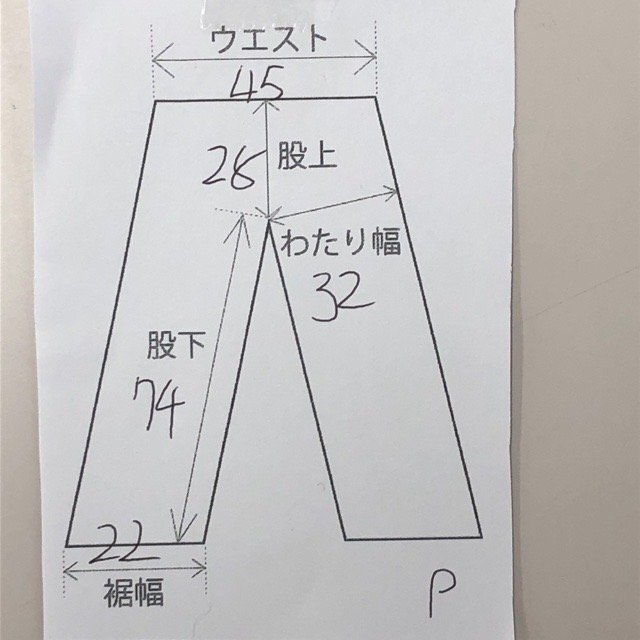 ウエスト
45
股上
28
わたり幅
32
股下
74
22
裾幅
P